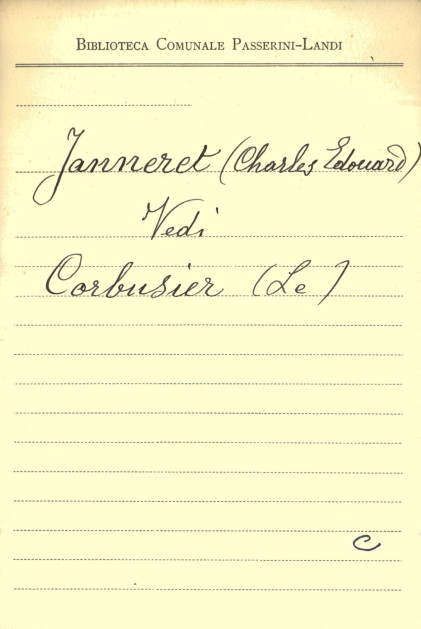 Biblioteca Comunale Passerini-Landi
Janneret (Charles Edouard)
Vedi
Corbusier (Le)
C